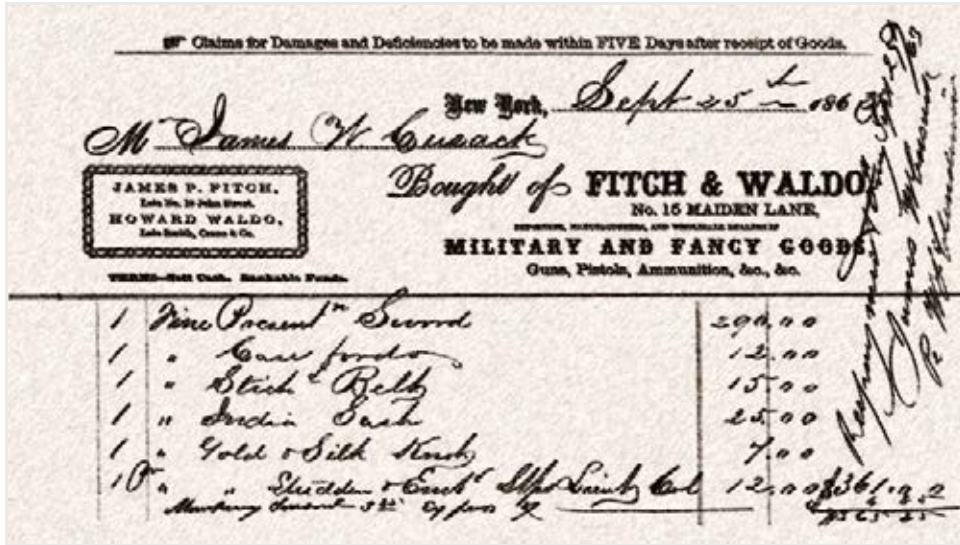 ☞ Claims for Damages and Deficiencies to be made within FIVE Days after receipt of Goods.
New York, Sept 25th 186
Mr James W Cusack
JAMES P. FITCH,
Late No. 10 John Street.
HOWARD WALDO,
Late Smith, Crane & Co.
TERMS—Nett Cash. Bankable Funds.
Bought of FITCH & WALDO,
No. 15 MAIDEN LANE,
IMPORTERS, MANUFACTURERS, AND WHOLESALE DEALERS IN
MILITARY AND FANCY GOODS,
Guns, Pistols, Ammunition, &c., &c.
1 Fine Presentn Sword 290.00
1 " Case for do 12.00
1 " Stichd Belt 15.00
1 " India Sash 25.00
1 " Gold & Silk Knot 7.00
1 Pr " " & Stps Lieut Col 12.00 $361.00